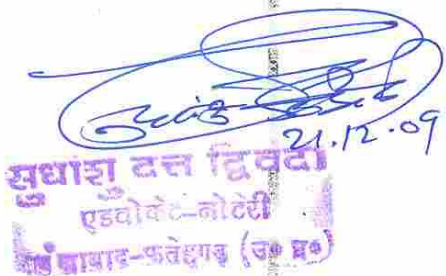 21.12.09
सुधांशु दत्त द्विवेदी
एडवोकेट-नोटेरी
फतेहगढ़ (उ० प्र०)